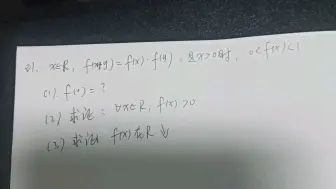 例1. x∈R, f(x+y)=f(x)·f(y), 且x>0时, 0<f(x)<1
(1) f(0)=?
(2) 求证: ∀x∈R, f(x)>0
(3) 求证: f(x)在R↓